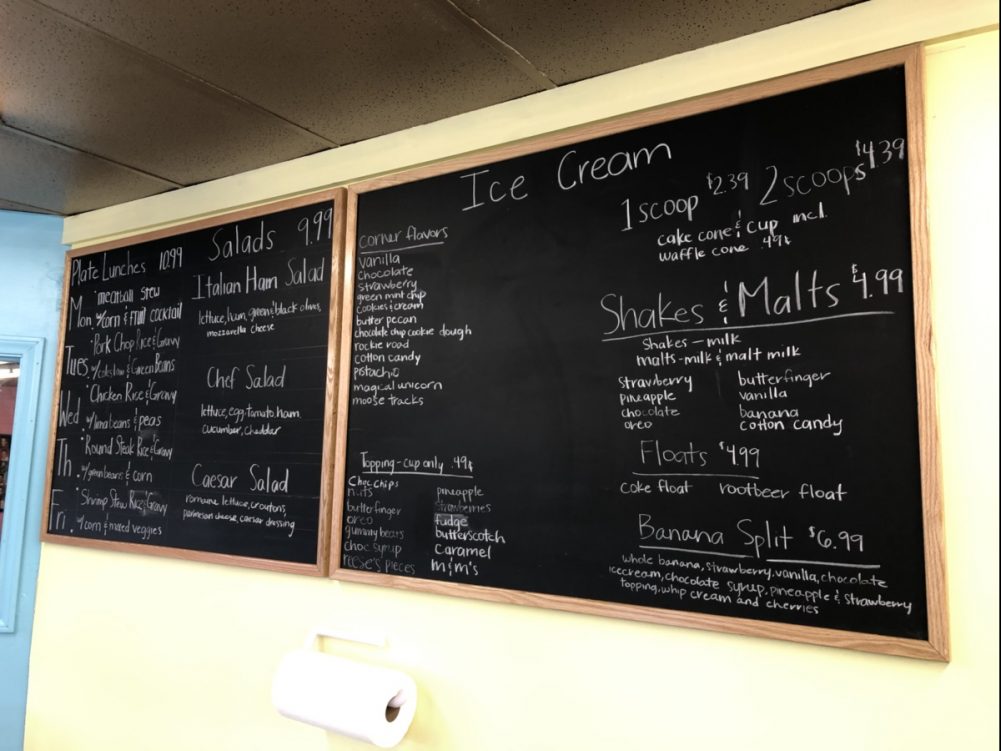 Plate Lunches 10.99
Mon. meatball stew
w/corn & fruit cocktail
Tues. Pork Chop Rice & Gravy
w/coleslaw & Green Beans
Wed. Chicken Rice & Gravy
w/lima beans & peas
Th. Round Steak Rice & Gravy
w/green beans & corn
Fri. Shrimp Stew Rice Gravy
w/corn & mixed veggies
Salads 9.99
Italian Ham Salad
lettuce, ham, green & black olives,
mozzarella cheese
Chef Salad
lettuce, egg, tomato, ham,
cucumber, cheddar
Caesar Salad
romaine lettuce, croutons,
parmesan cheese, caesar dressing
Ice Cream
corner flavors
vanilla
chocolate
strawberry
green mint chip
cookies & cream
butter pecan
chocolate chip cookie dough
rockie road
cotton candy
pistachio
magical unicorn
moose tracks
Topping - cup only .49¢
choc chips
nuts
butterfinger
oreo
gummy bears
choc syrup
reese's pieces
pineapple
strawberries
fudge
butterscotch
Caramel
m&m's
1 scoop $2.39 2 scoops $4.39
cake cone & cup incl.
waffle cone .49¢
Shakes & Malts $4.99
shakes - milk
malts - milk & malt milk
strawberry
pineapple
chocolate
oreo
butterfinger
vanilla
banana
cotton candy
Floats $4.99
coke float rootbeer float
Banana Split $6.99
whole banana, strawberry, vanilla, chocolate
icecream, chocolate syrup, pineapple & strawberry
topping, whip cream and cherries